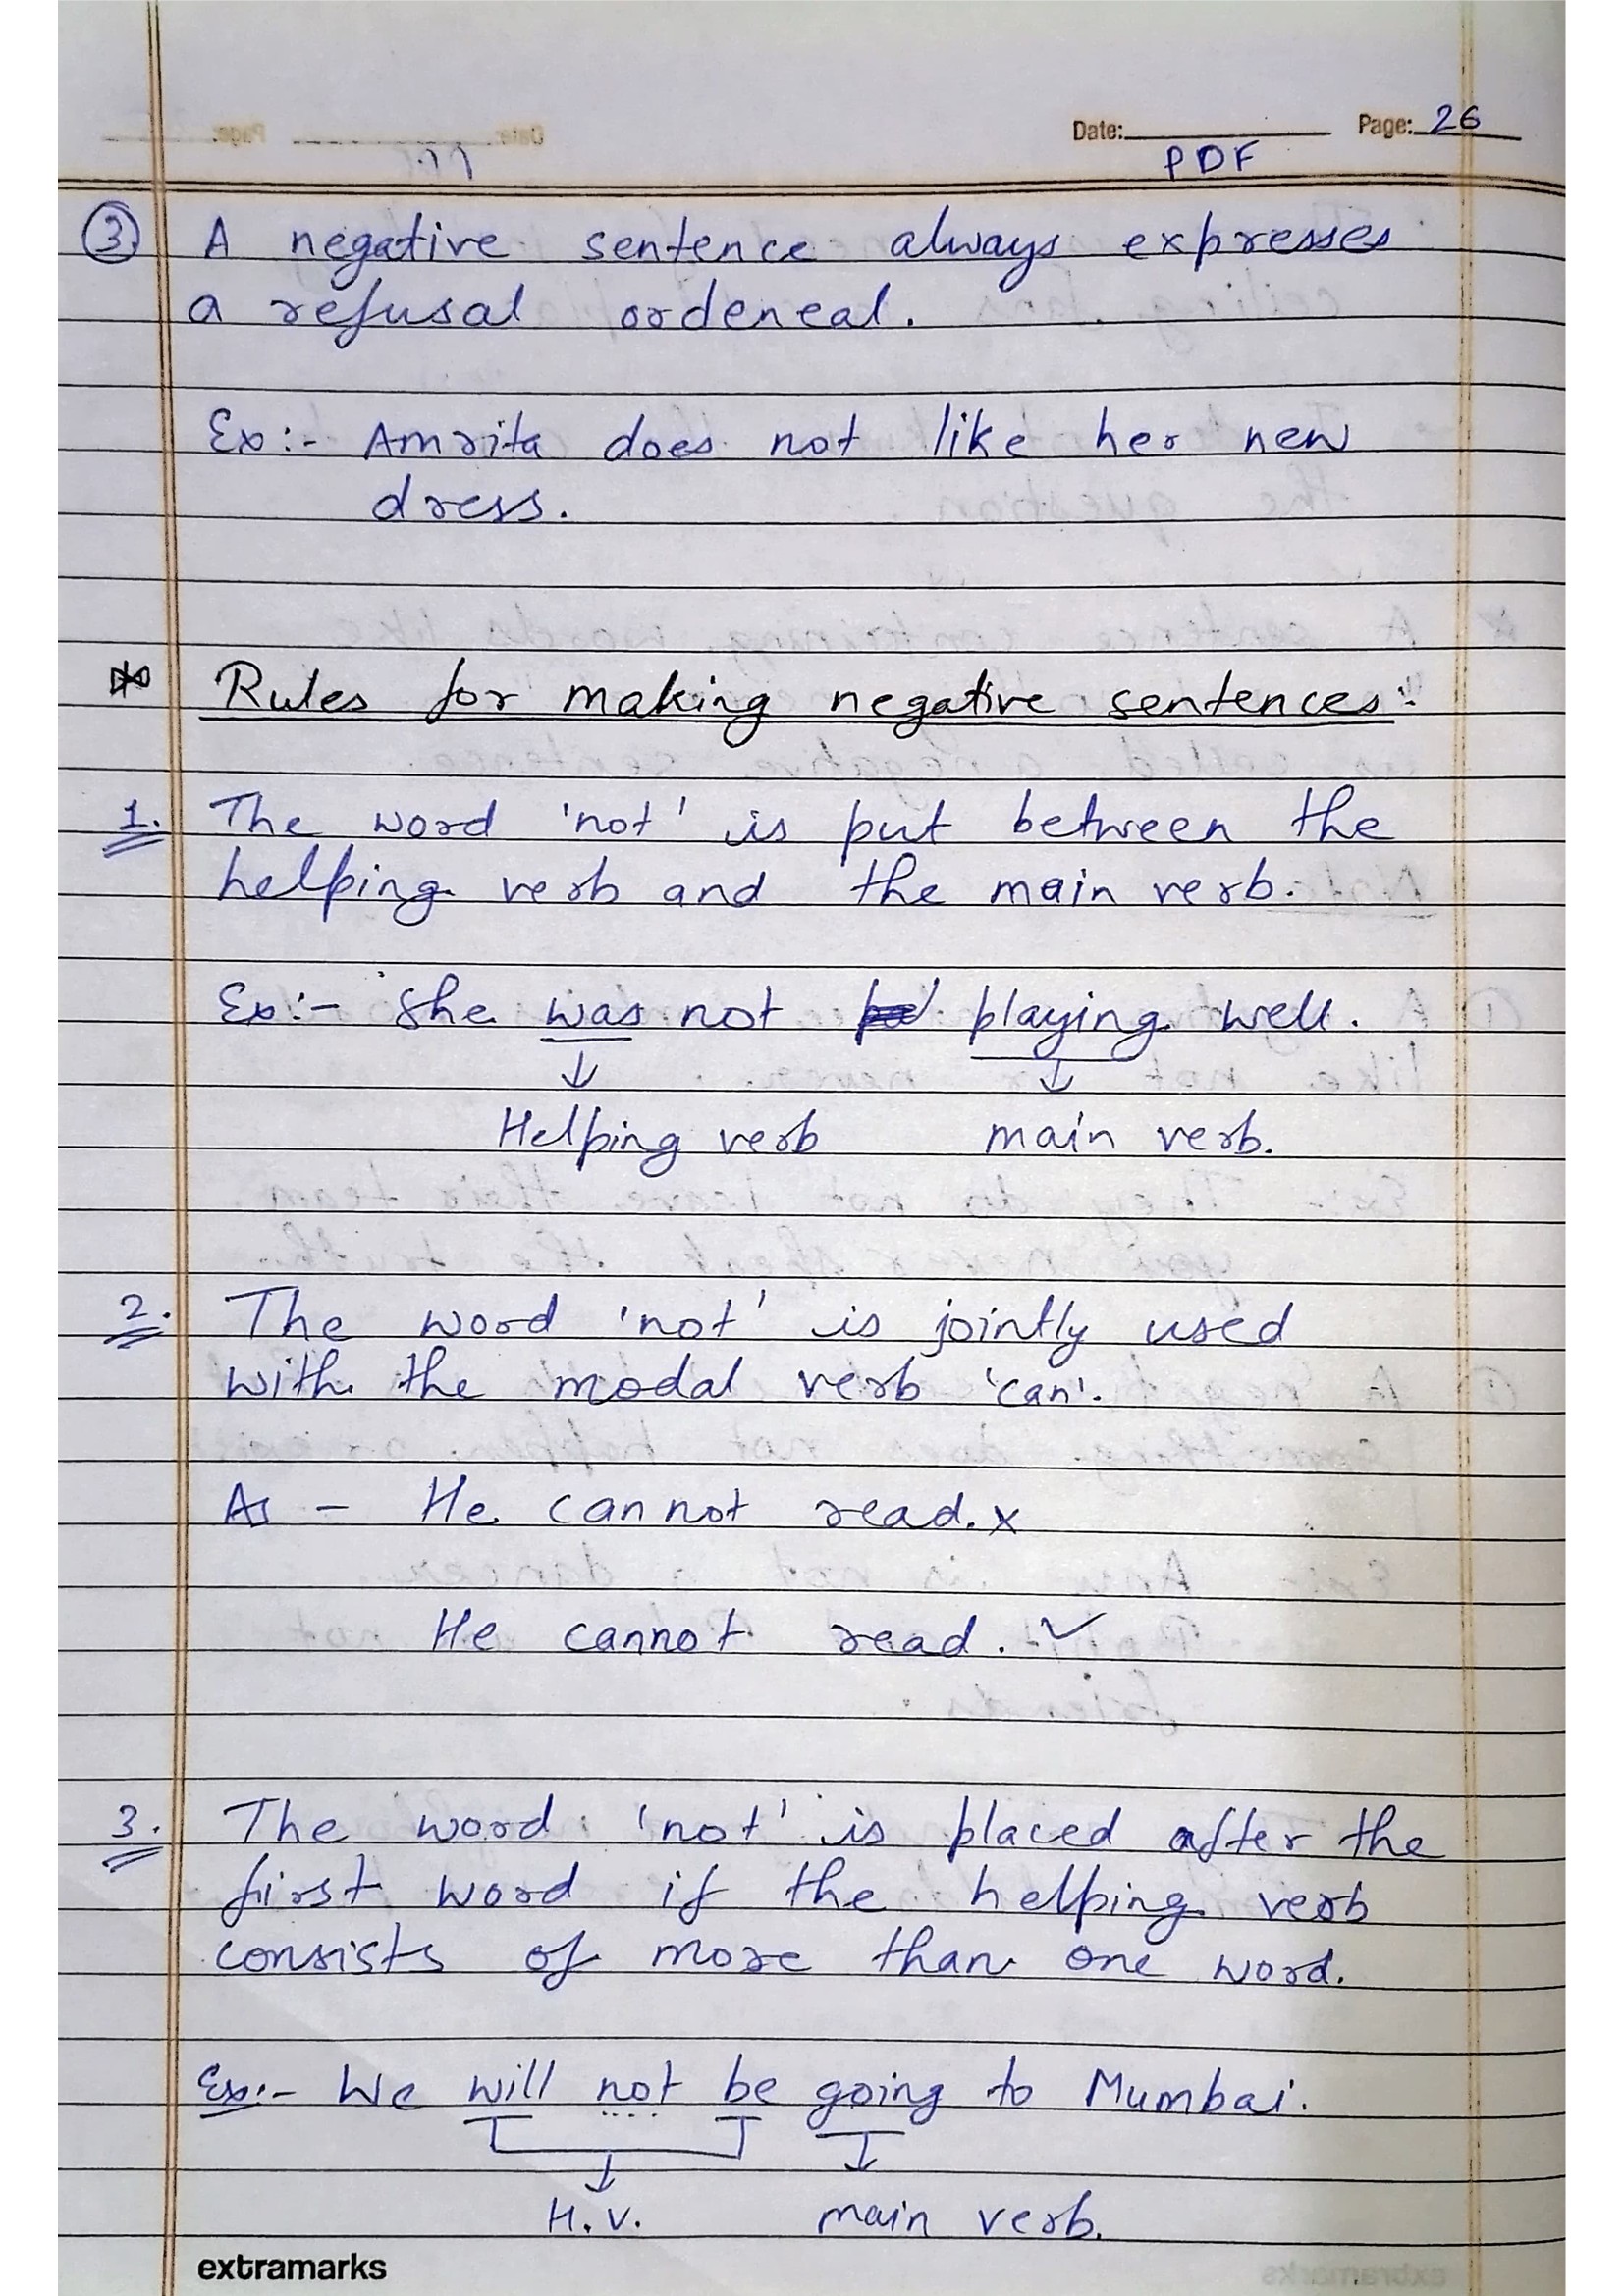 Date: Page: 26
PDF
③ A negative sentence always expresses
a refusal ordeneal.
Ex:- Amrita does not like her new
dress.
Rules for making negative sentences:
1. The word 'not' is put between the
helping verb and the main verb.
Ex:- She was not playing well.
↓ ↓
Helping verb main verb.
2. The word 'not' is jointly used
with the modal verb 'can'.
As - He can not read. x
He cannot read. ✓
3. The word 'not' is placed after the
first word if the helping verb
consists of more than one word.
Ex:- We will not be going to Mumbai.
↓ ↓
H.V. main verb.
extramarks